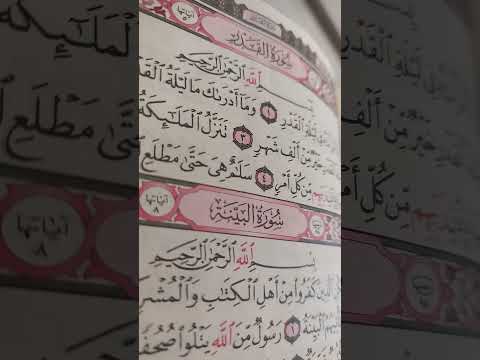 سُورَةُ القَدْرِ آيَاتُهَا ٥
بِسْمِ ٱللَّهِ ٱلرَّحْمَٰنِ ٱلرَّحِيمِ
لَيْلَةِ ٱلْقَدْرِ ١ وَمَآ أَدْرَىٰكَ مَا لَيْلَةُ ٱلْقَدْ
خَيْرٌ مِّنْ أَلْفِ شَهْرٍ ٣ تَنَزَّلُ ٱلْمَلَٰٓئِكَةُ
مِّن كُلِّ أَمْرٍ ٤ سَلَٰمٌ هِىَ حَتَّىٰ مَطْلَعِ
سُورَةُ البَيِّنَةِ آيَاتُهَا ٨
بِسْمِ ٱللَّهِ ٱلرَّحْمَٰنِ ٱلرَّحِيمِ
ٱلَّذِينَ كَفَرُوا۟ مِنْ أَهْلِ ٱلْكِتَٰبِ وَٱلْمُشْرِ
ٱلْبَيِّنَةُ ١ رَسُولٌ مِّنَ ٱللَّهِ يَتْلُوا۟ صُحُفًا